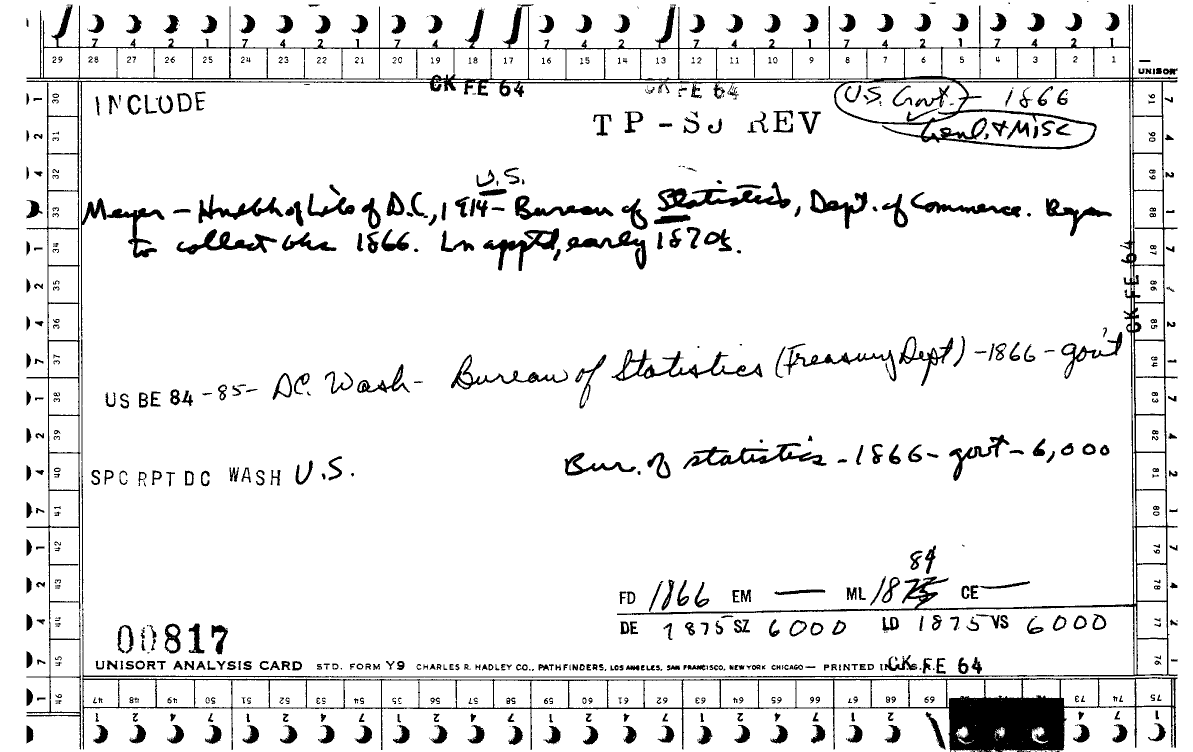 7 4 2 1 7 4 2 1 7 4 2 1 7 4 2 1 7 4 2 1 7 4 2 1 7 4 2 1
29 28 27 26 25 24 23 22 21 20 19 18 17 16 15 14 13 12 11 10 9 8 7 6 5 4 3 2 1
UNISORT
CK FE 64 CK FE 64
INCLUDE
U.S. Govt. - 1866
TP-SJ REV
Genl. & Misc
U.S.
Meyer - Hndbk of Libs of D.C., 1914 - Bureau of Statistics, Dept. of Commerce. Began
to collect bks 1866. Ln apptd, early 1870s.
CK FE 64
US BE 84-85- DC. Wash- Bureau of Statistics (Treasury Dept) -1866 - gov't
SPC RPT DC WASH U.S. Bur. of statistics - 1866 - govt - 6,000
84
FD 1866 EM — ML 1875 CE —
DE 1875 SZ 6000 LD 1875 VS 6000
00817
UNISORT ANALYSIS CARD STD. FORM Y9 CHARLES R. HADLEY CO., PATHFINDERS, LOS ANGELES, SAN FRANCISCO, NEW YORK CHICAGO — PRINTED IN U.S.A.
CK FE 64
47 48 49 50 51 52 53 54 55 56 57 58 59 60 61 62 63 64 65 66 67 68 69 73 74 75